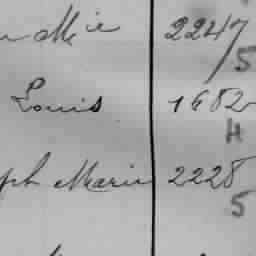 Mie 2247
5
Louis 1682
4
ph Marie 2228
5